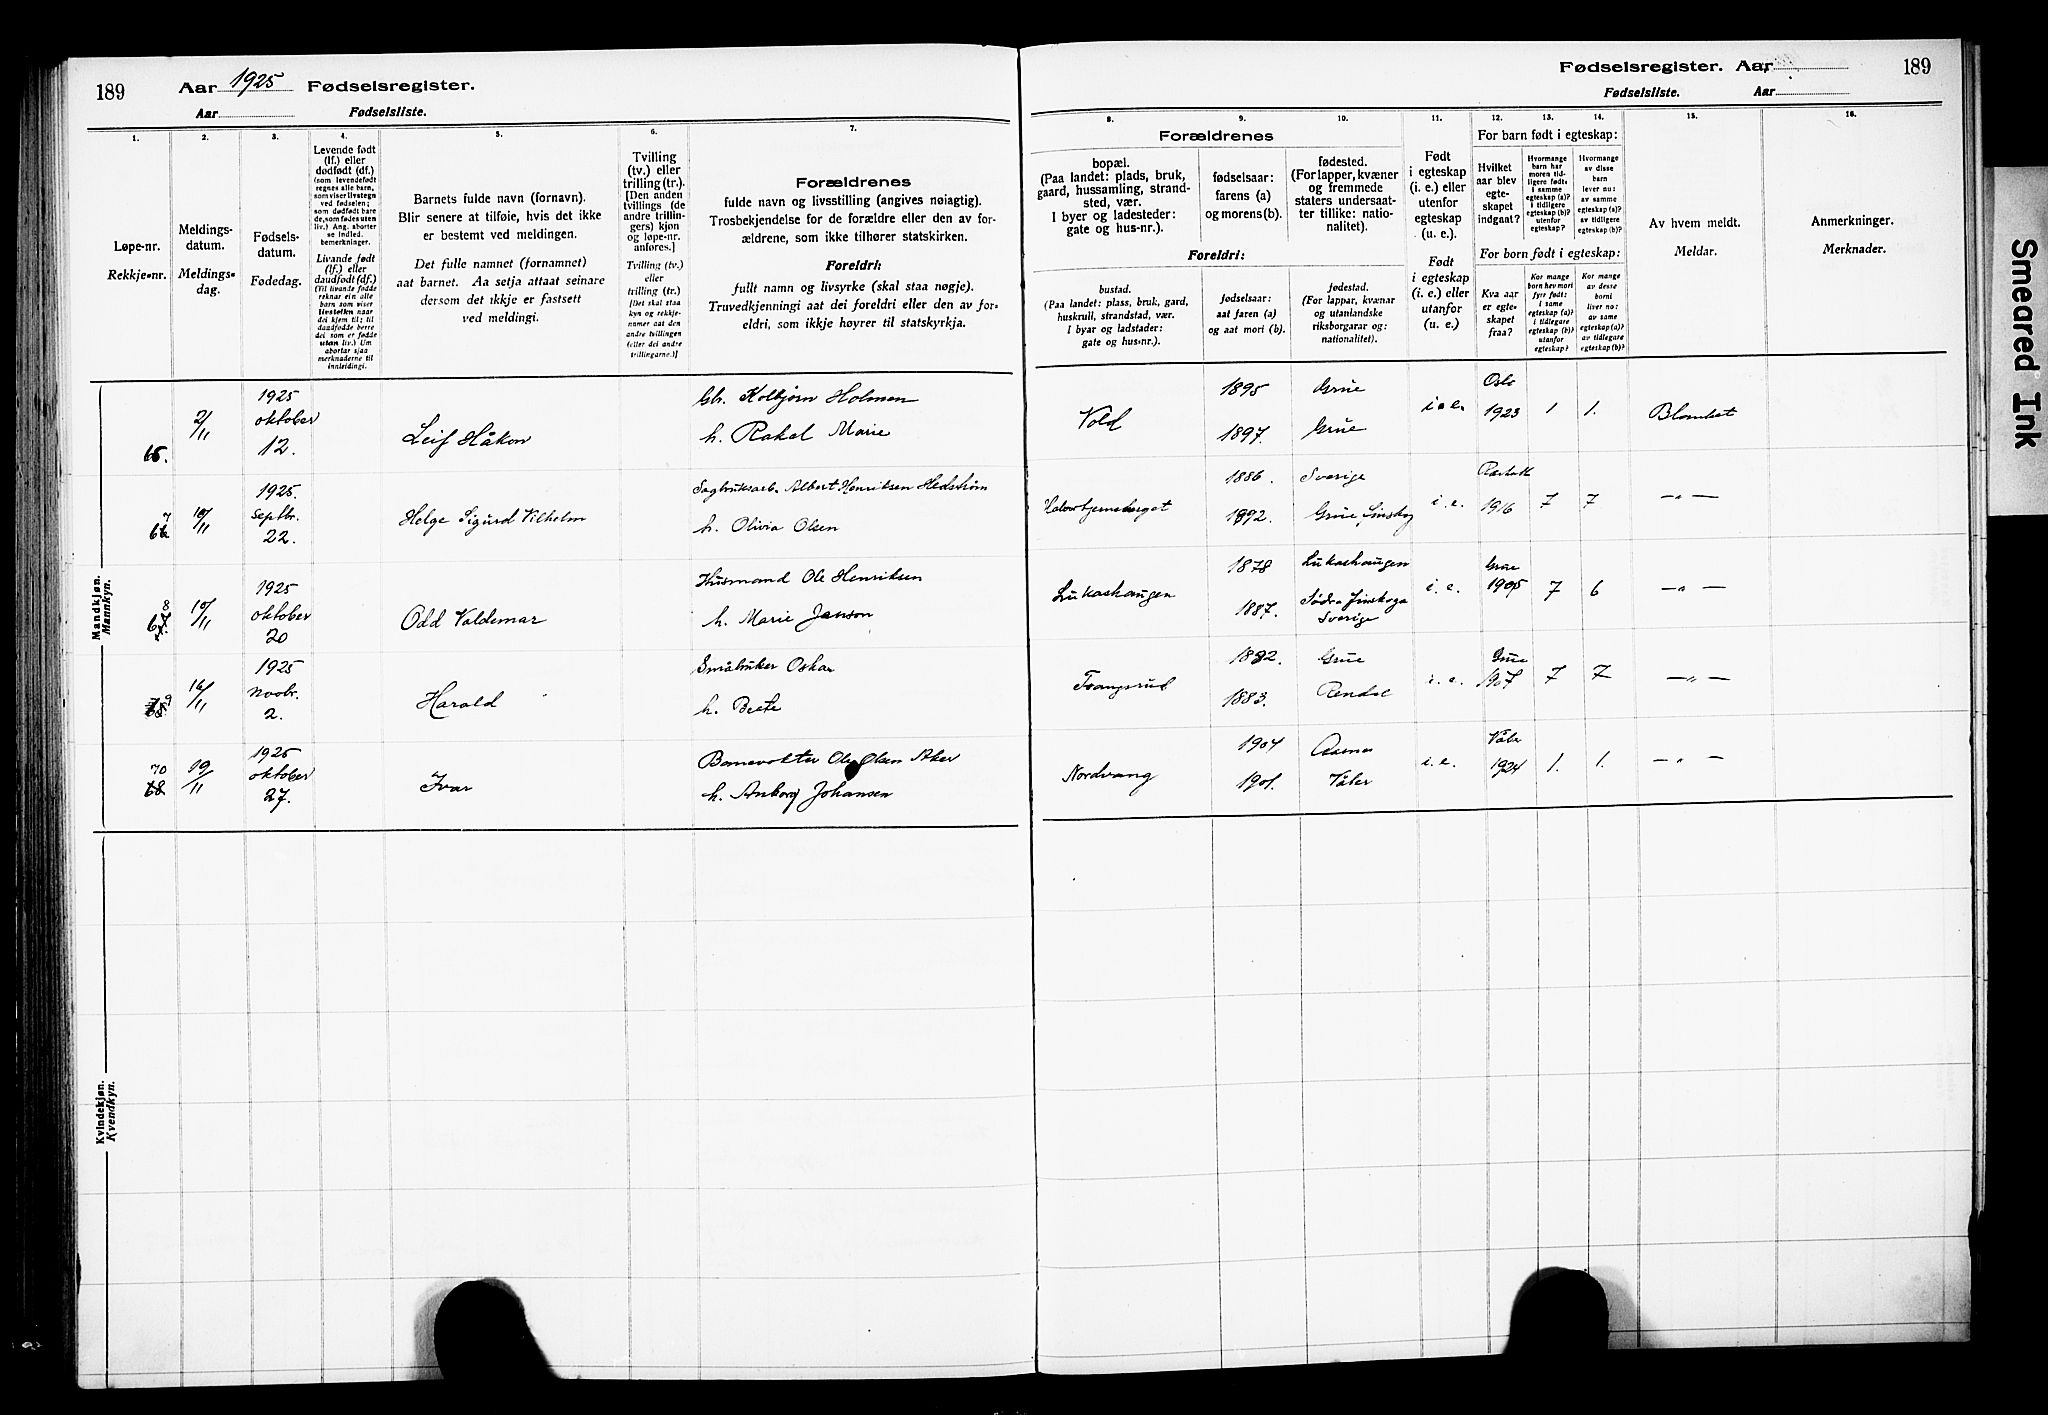 189
Aar 1925 Fødselsregister.
Aar Fødselsliste.
Fødselsregister. Aar
Fødselsliste. Aar
189
1. 2. 3. 4. 5. 6. 7.
Løpe-nr.
Rekkje-nr.
Meldings-
datum.
Meldings-
dag.
Fødsels-
datum.
Fødedag.
Levende født
(lf.) eller
dødfødt (df.)
(som levendefødt
regnes alle barn,
som viser livstegn
ved fødselen;
som dødfødt bare
de, som fødes uten
liv.) Ang. aborter
se indled.
bemerkninger.
Livande født
(lf.) eller
daudfødt (df.)
(Til livande fødde
reknar ein alle
born som viser
livsteikn naar
dei kjem til; til
daudfødde berre
dei som er fødde
utan liv.) Um
abortar sjaa
merknaderne til
innleidingi.
Barnets fulde navn (fornavn).
Blir senere at tilføie, hvis det ikke
er bestemt ved meldingen.
Det fulle namnet (fornamnet)
aat barnet. Aa setja attaat seinare
dersom det ikkje er fastsett
ved meldingi.
Tvilling
(tv.) eller
trilling (tr.).
[Den anden
tvillings (de
andre trillin-
gers) kjøn
og løpe-nr.
anføres.]
Tvilling (tv.)
eller
trilling (tr.)
[Det skal staa
kyn og rekkje-
numer aat den
andre tvillingen
(eller dei andre
trillingarne.)]
Forældrenes
fulde navn og livsstilling (angives nøiagtig).
Trosbekjendelse for de forældre eller den av for-
ældrene, som ikke tilhører statskirken.
Foreldri:
fullt namn og livsyrke (skal staa nøgje).
Truvedkjenningi aat dei foreldri eller den av for-
eldri, som ikkje høyrer til statskyrkja.
8. 9. 10. 11. 12. 13. 14. 15. 16.
Forældrenes
bopæl.
(Paa landet: plads, bruk,
gaard, hussamling, strand-
sted, vær.
I byer og ladesteder:
gate og hus-nr.).
fødselsaar:
farens (a)
og morens (b).
fødested.
(For lapper, kvæner
og fremmede
staters undersaat-
ter tillike: natio-
nalitet).
Foreldri:
bustad.
(Paa landet: plass, bruk, gard,
huskrull, strandstad, vær.
I byar og ladstader:
gate og hus-nr.).
fødselsaar:
aat faren (a)
og aat mori (b).
fødestad.
(For lappar, kvænar
og utanlandske
riksborgarar og:
nationalitet).
Født
i egteskap
(i. e.) eller
utenfor
egteskap
(u. e.).
Født
i egteskap
(i. e.) eller
utanfor
(u. e.)
For barn født i egteskap:
Hvilket
aar blev
egte-
skapet
indgaat?
Hvormange
barn har
moren tid-
ligere født:
i samme
egteskap (a)?
i tidligere
egteskap (b)?
utenfor
egteskap?
Hvormange
av disse
barn
lever nu:
av samme
egteskap (a)?
av tidligere
egteskap (b)?
For born født i egteskap:
Kva aar
er egte-
skapet
fraa?
Kor mange
born hev mori
fyrr født:
i same
egteskap (a)?
i tidlegare
egteskap (b)?
utanfor
egteskap?
Kor mange
av desse
borni
liver no:
av same
egteskap (a)?
av tidlegare
egteskap (b)?
Av hvem meldt.
Meldar.
Anmerkninger.
Merknader.
Mandkjøn.
Mannkyn.
1925 Gbr. Kolbjørn Holmen 1895 Grue Oslo
2/11 oktober Leif Håkon Vold i. e. 1923 1 1.
12. h. Rakel Marie 1897. Grue
1925. Sagbruksarb. Albert Henriksen Hedstrøm 1886. Sverige
10/11 Septbr. Helge Sigurd Vilhelm i. e. 1916 7 7 —"—
22. h. Olivia Olsen 1892. Grue Finskog
1925 Husmand Ole Henriksen 1878 Lukashaugen Grue
10/11 oktober Odd Valdemar Lukashaugen i. e. 1905 7 6 —"—
20 h. Marie Janson 1887. Södra Finskoga
Sverige
1925 Småbruker Oskar 1882. Grue Grue
16/11 Novbr. Harald i. e. 1907 7 7 —"—
2. h. Beate 1883.
1925 Banevokter Ole Olsen Aker 1904 Aasnes Våler
70 19/11 oktober Ivar Nordvang i. e. 1924 1. 1. —"—
27. h. Anborg Johansen 1901. Våler
Kvindekjøn.
Kvendkyn.
Smeared Ink